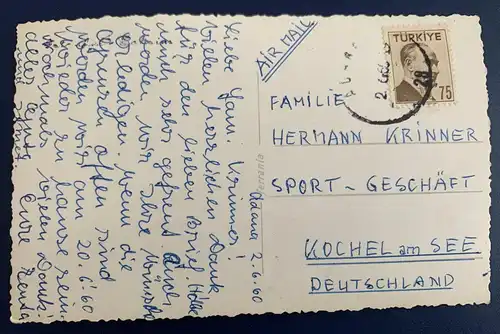 AIR MAIL
TÜRKİYE
75
FAMILIE
HERMANN KRINNER
SPORT-GESCHÄFT
KOCHEL am SEE
DEUTSCHLAND
Adana 2.6.60
Liebe Fam. Krinner!
Vielen herzlichen Dank
für den lieben Brief. Habe
mich sehr gefreut. Auch
werden wir Ihre Wünsche
erledigen. Wenn die
offen sind
werden wir am 20.6.60
wieder zu Hause sein.
Nochmals vielen Dank!
alles Gute Eure
und